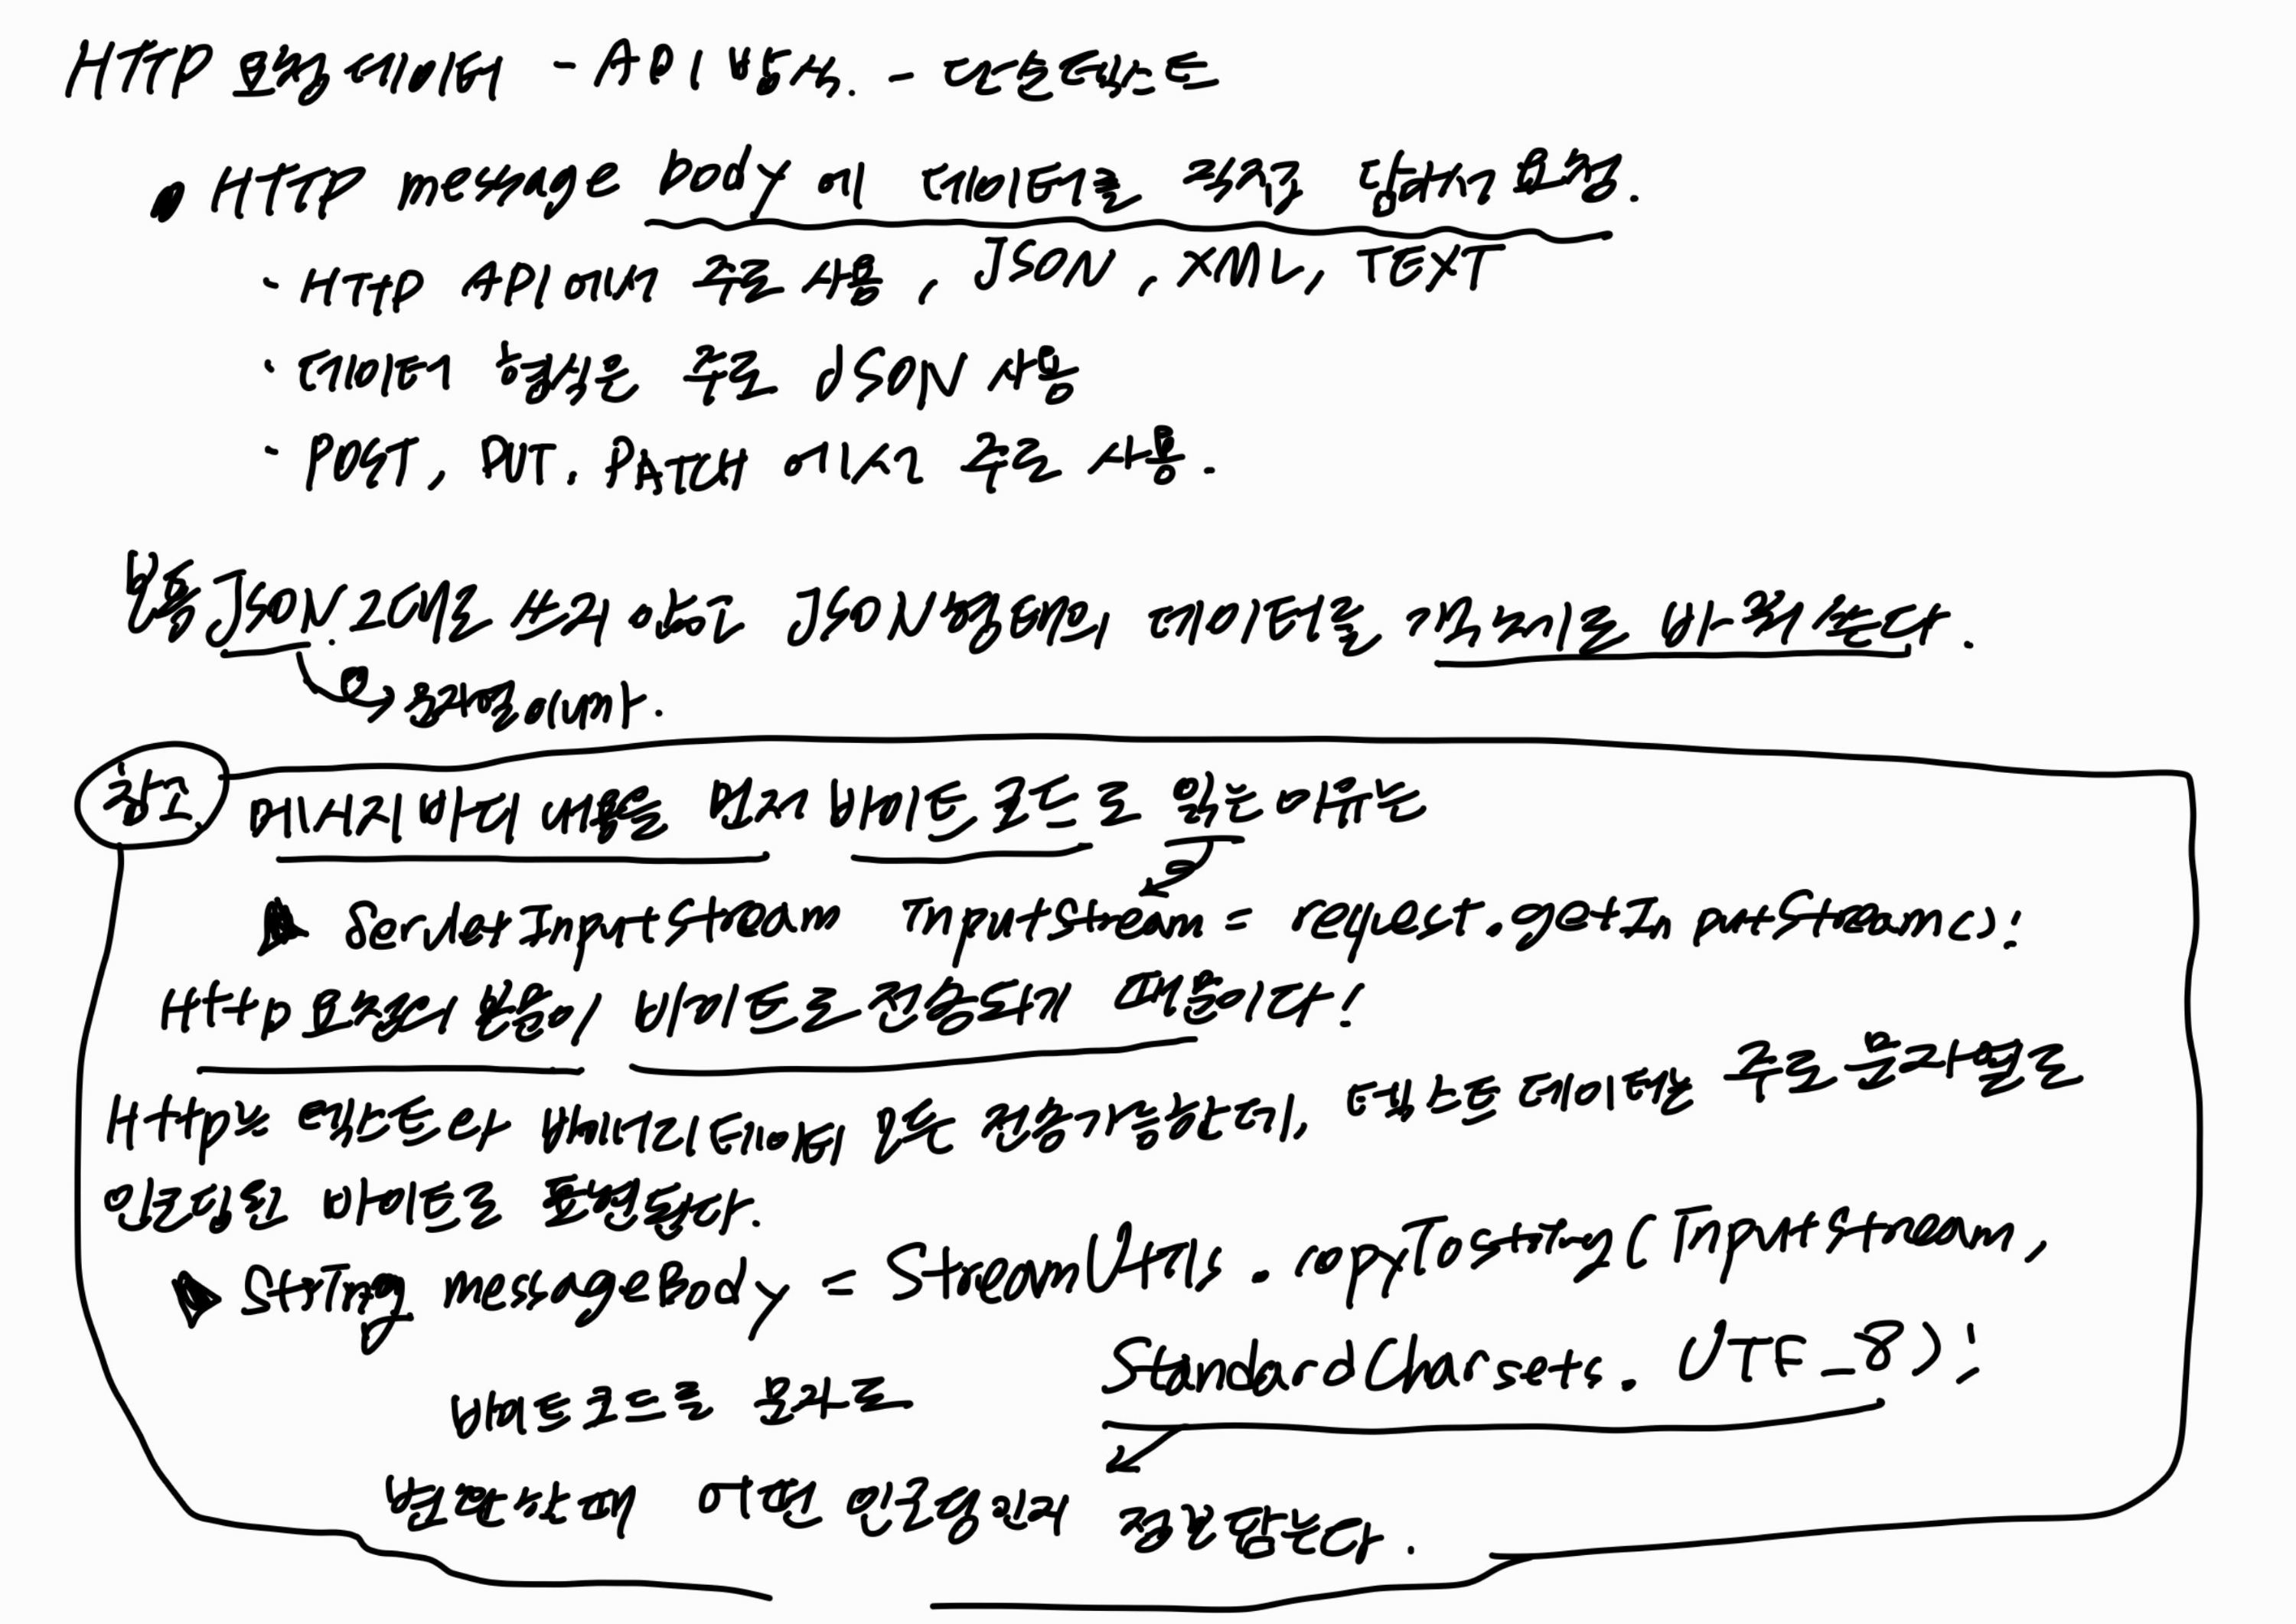 HTTP 요청 데이터 - API 방식. - 단순 텍스트
HTTP message body 에 데이터를 직접 담아서 요청.
· HTTP API 에서 주로 사용, JSON, XML, TEXT
· 데이터 형식은 주로 JSON 사용
· POST, PUT. PATCH 에서 주로 사용.
보통 JSON 그대로 쓰지 않고 JSON형태의 데이터를 객체로 바꿔 쓴다.
문자열이니까.
참고
메시지 바디 내용을 먼저 바이트 코드로 읽는 이유는
▶ ServletInputStream InputStream = request.getInputStream();
Http 요청의 본문이 바이트로 전송되기 때문이다!
Http는 텍스트와 바이너리 데이터 모두 전송가능한데, 텍스트 데이터는 주로 문자열로
인코딩된 바이트로 표현된다.
▶ String messageBody = StreamUtils.copyToString(InputStream,
StandardCharsets.UTF_8);
바이트 코드를 문자로
변환할때 어떤 인코딩인지 정보 담는다.